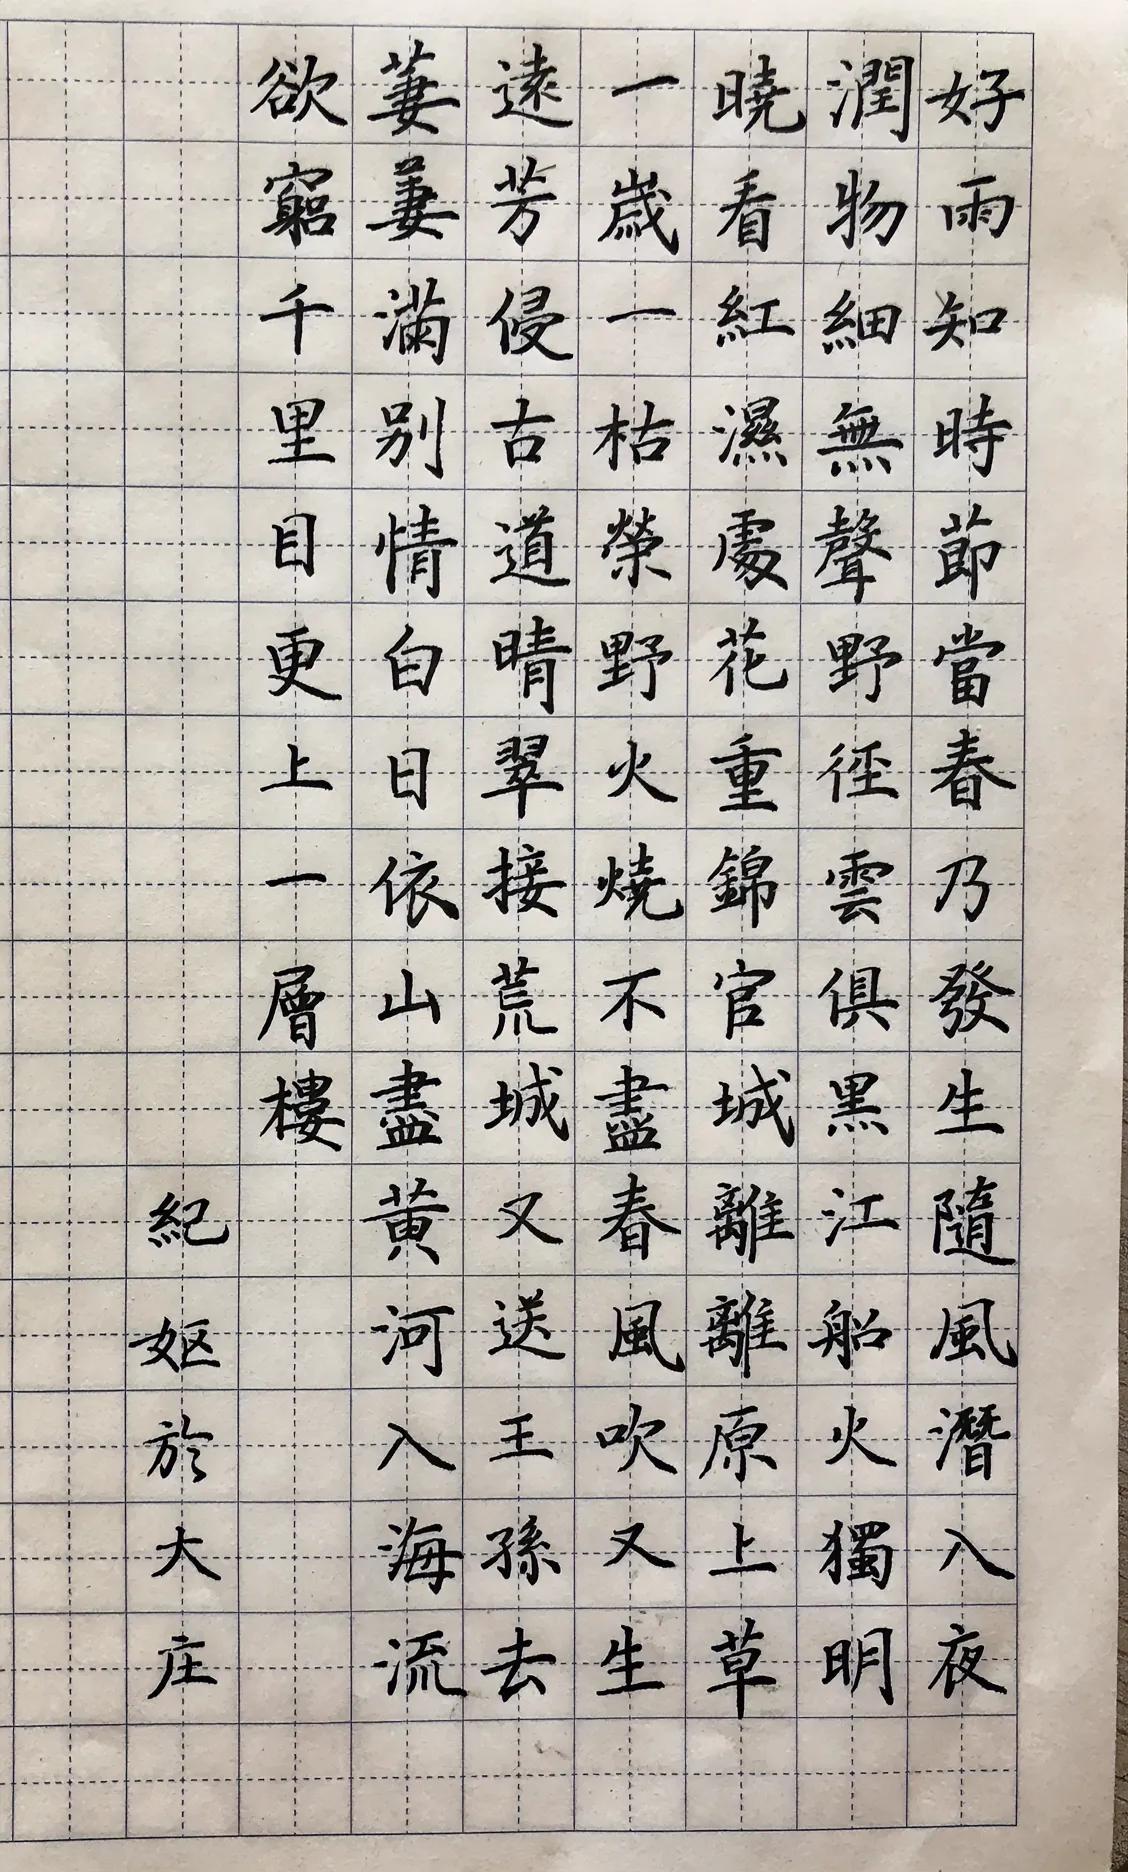 好雨知時節當春乃發生隨風潛入夜
潤物細無聲野徑雲俱黑江船火獨明
曉看紅濕處花重錦官城離離原上草
一歲一枯榮野火燒不盡春風吹又生
遠芳侵古道晴翠接荒城又送王孫去
萋萋滿別情白日依山盡黃河入海流
欲窮千里目更上一層樓
紀妪於大庄